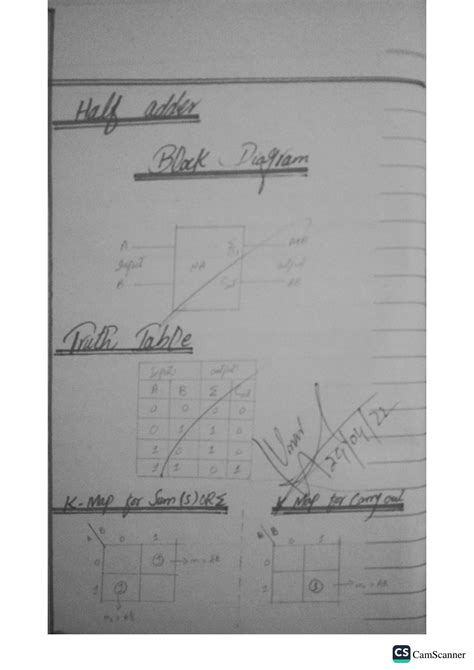 Half adder
Block Diagram
A
Σ
A⊕B
Input
HA
output
B
Cout
AB
Truth Table
Input output
A B Σ Cout
0 0 0 0
0 1 1 0
1 0 1 0
1 1 0 1
29/04/22
K-Map for Sum (S) OR Σ
K Map for Carry out
A B 0 1
0 1
1 1
A B 0 1
0
1 1
CS CamScanner